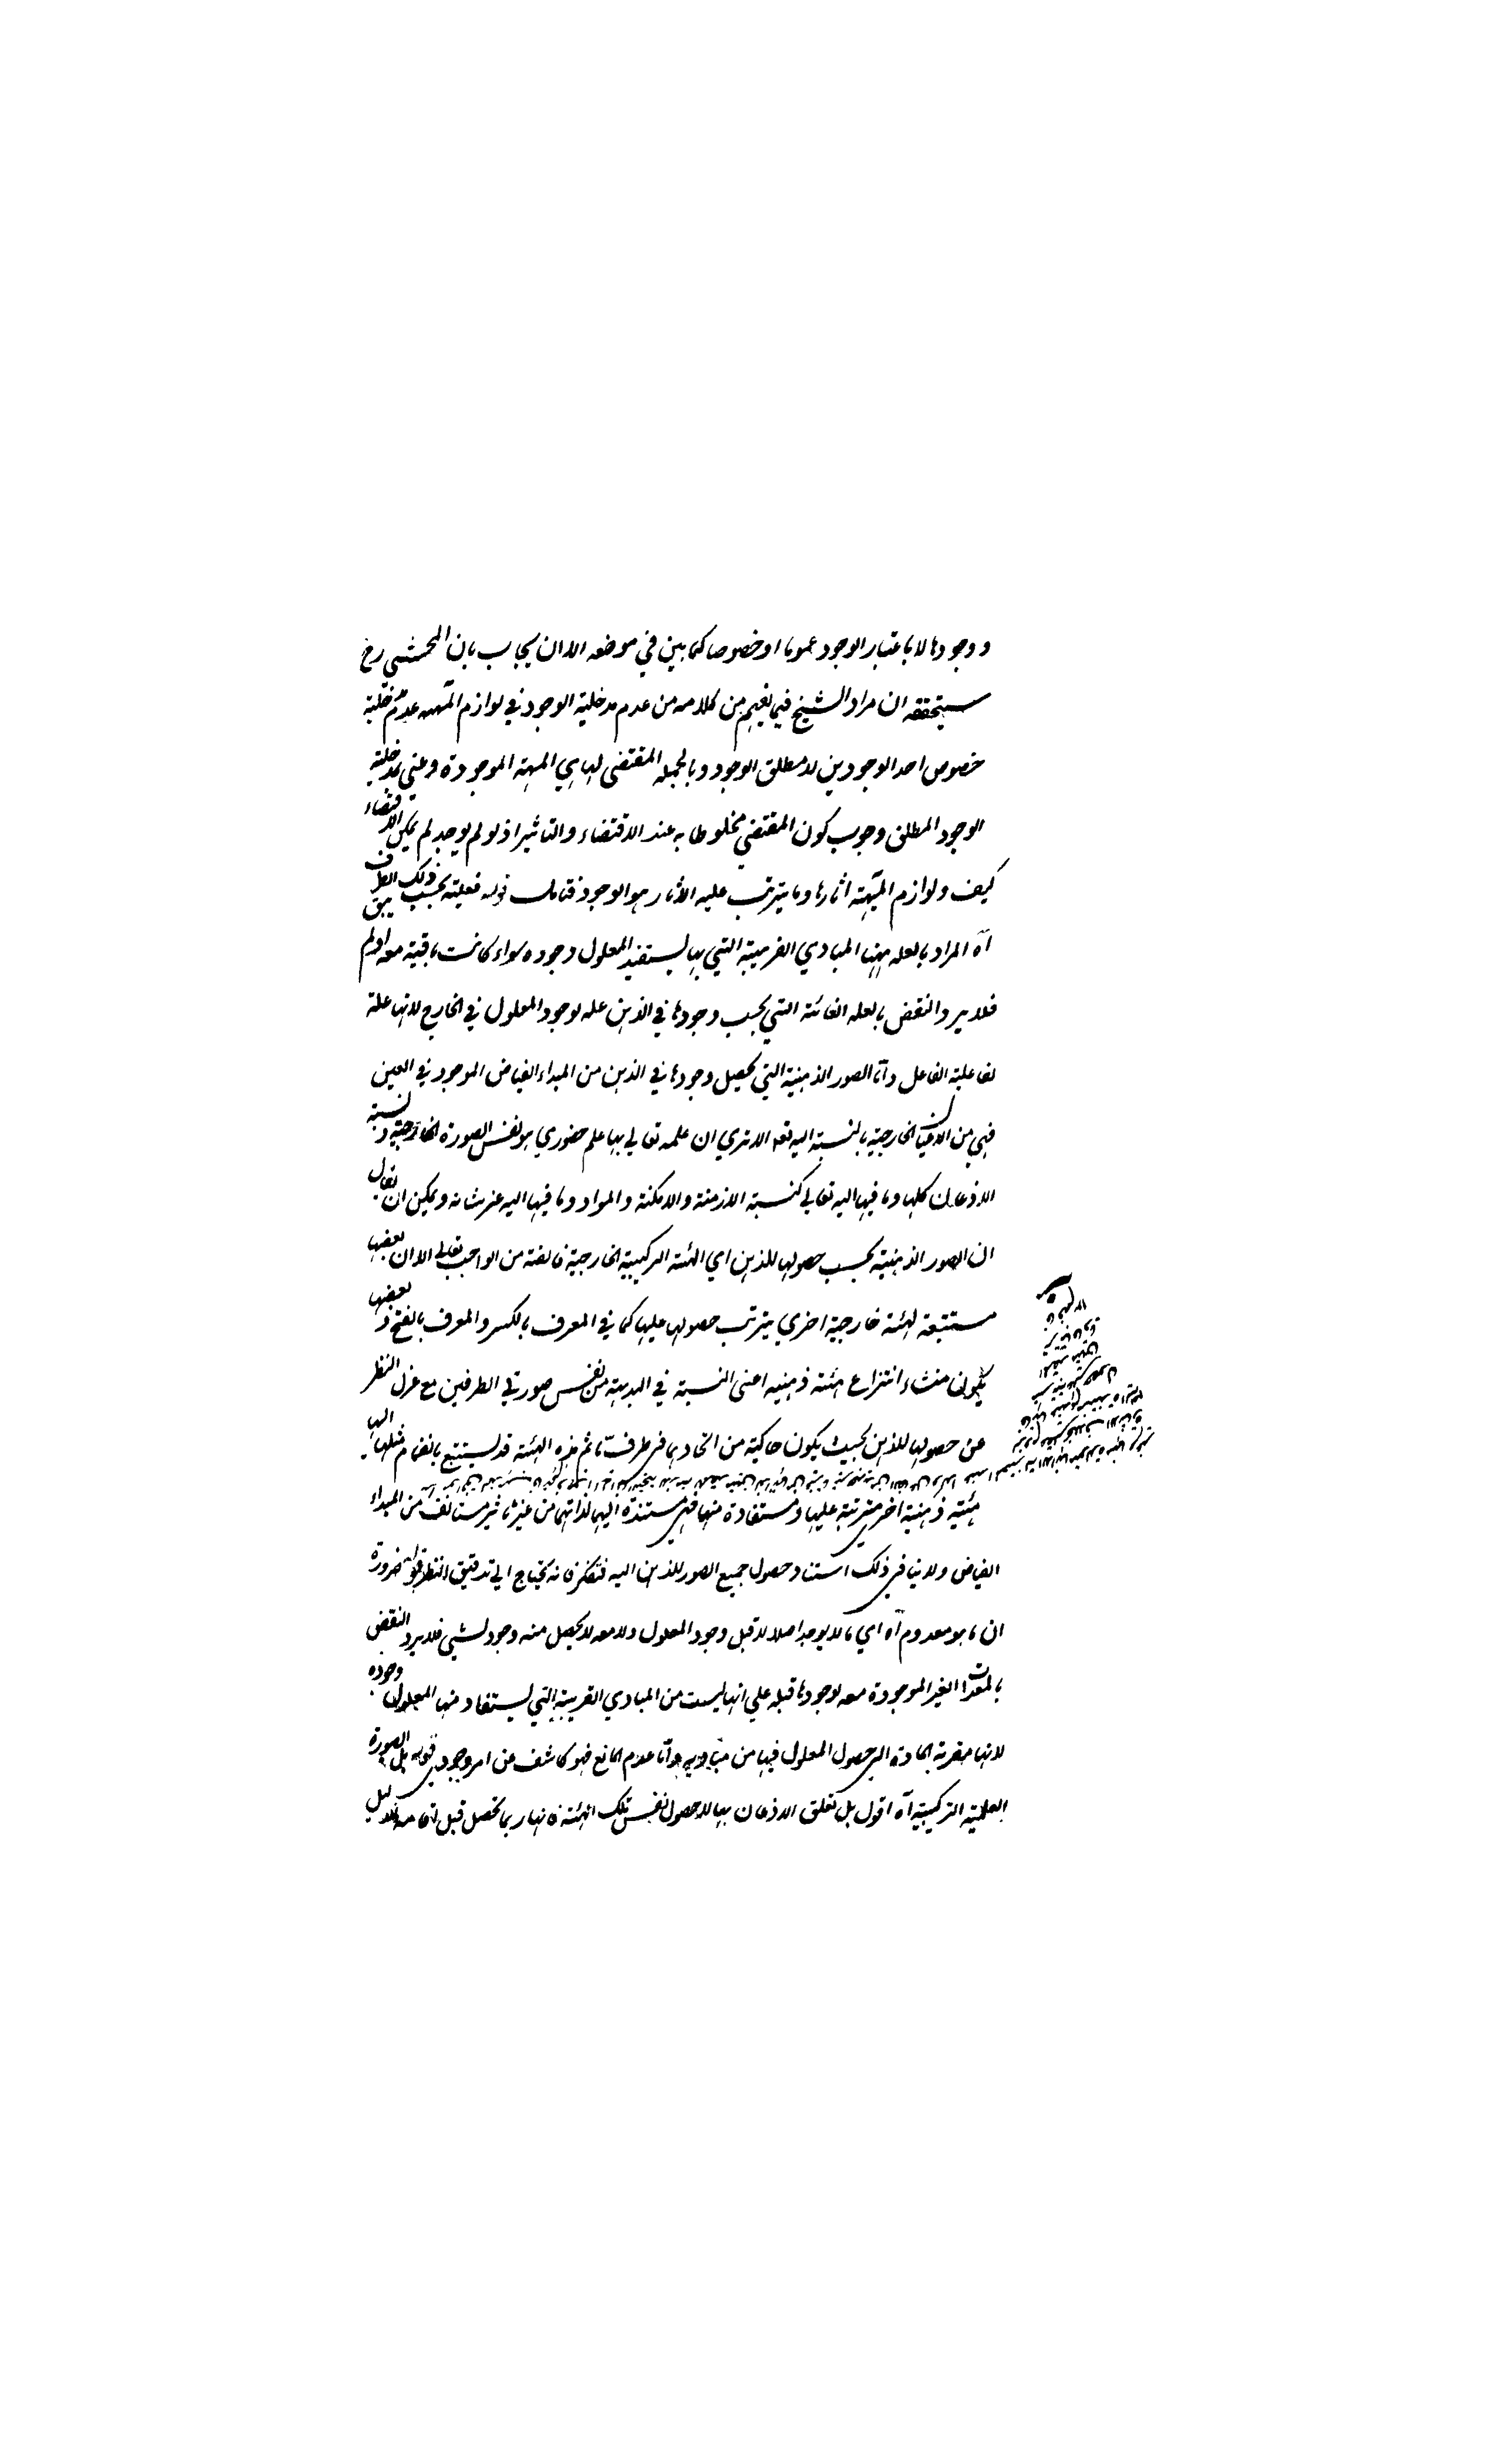 ووجودها لا باعتبار الوجود عموما او خصوصا كما بين في موضعه الا ان يجاب بان المحشي رح
سيحققه ان مراد الشيخ فيما يفهم من كلامه من عدم مدخلية الوجود في لوازم المهية عدم مدخلية
خصوص احد الوجودين لا مطلق الوجود وبالجمله المقتضي لها هي المهية الموجودة وعني بمدخلية
الوجود المطلق وجوب كون المقتضي مخلوطا به عند الاقتضاء والتاثير اذ لو لم يوجد لم يكن الاقتضاء
كيف ولوازم المهية اثارها وما يترتب عليه الاثار هو الوجود فتامل قوله فعليته بحسب ذلك الظرف
آه المراد بالعله ههنا المبادي القريبة التي بها يستفيد المعلول وجوده سواء كانت باقية معه او لم يبق
فلا يرد النقض بالعله الغائية التي بحسب وجودها في الذهن عله لوجود المعلول في الخارج لانها علة
لفاعلية الفاعل واما الصور الذهنية التي يحصل وجودها في الذهن من المبداء الفياض الموجود في العين
فهي من الاعيان الخارجية بالنسبة اليه تعه الا تري ان علمه تعالي بها علم حضوري هو نفس الصورة الخارجية ونسبة
الاذهان كلها وما فيها اليه تعالي كنسبة الازمنة والامكنة والمواد وما فيها اليه عز شانه ويمكن ان يقال
ان الصور الذهنية بحسب حصولها للذهن اي الهئية التركيبية الخارجية فائضة من الواجب تعالي الا ان بعضها
مستتبعة لهئية خارجية اخري يترتب حصولها عليها كما في المعرف بالكسر والمعرف بالفتح وبعضها
يكون منشاء انتزاع هئية ذهنيه اعني النسبة في البديهية من نفس صورتي الطرفين مع عزل النظر
عن حصولها للذهن بحيث يكون حاكية من اتحادهما في ظرف ما ثم هذه الهئية قد يستتبع بانضمام مثلها اليها
هئية ذهنية اخري مترتبة عليها ومستفادة منها فهي مستندة اليها لذاتها من غير تاثير مستانف من المبداء
الفياض ولا ينافي ذلك استناد حصول جميع الصور للذهن اليه فتفكر فانه يحتاج الي تدقيق النظر قوله ضرورة
ان ما هو معدوم آه اي ما لا يوجد اصلا لا قبل وجود المعلول ولا معه لا يحصل منه وجود لشيي فلا يرد النقض
بالمعدات الغير الموجودة معه لوجودها قبله علي انها ليست من المبادي القريبة التي يستفاد منها المعلول وجوده
لانها مقربة المادة الي حصول المعلول فيها من مباديه واما عدم المانع فهو كاشف عن امر وجودي قوله بل الصورة
العلمية التركيبية آه اقول بل تعلق الاذعان بها لا حصول نفس تلك الهئية فانها ربما تحصل قبل اقامة الدليل